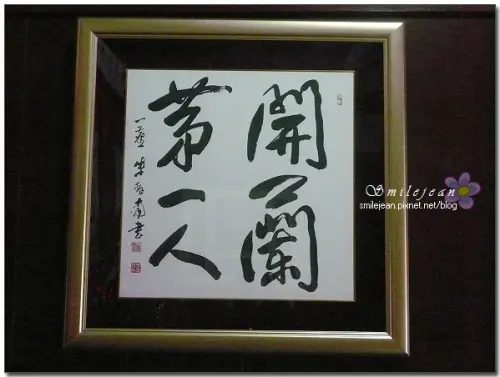 開蘭
第一人
一爐 朱振南書
Smilejean
smilejean.pixnet.net/blog